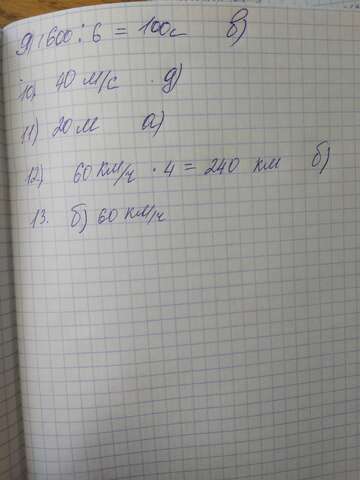 9) 600 : 6 = 100с в)
10) 40 м/с · д)
11) 20 м а)
12) 60 км/ч · 4 = 240 км б)
13. б) 60 км/ч